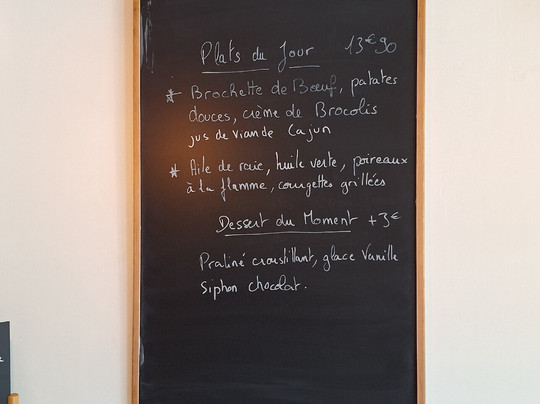 Plats du Jour 13€90
* Brochette de Bœuf, patates
douces, crème de Brocolis
jus de viande Cajun
* Aile de raie, huile verte, poireaux
à la flamme, courgettes grillées
Dessert du Moment +3€
Praliné croustillant, glace Vanille
Siphon chocolat.